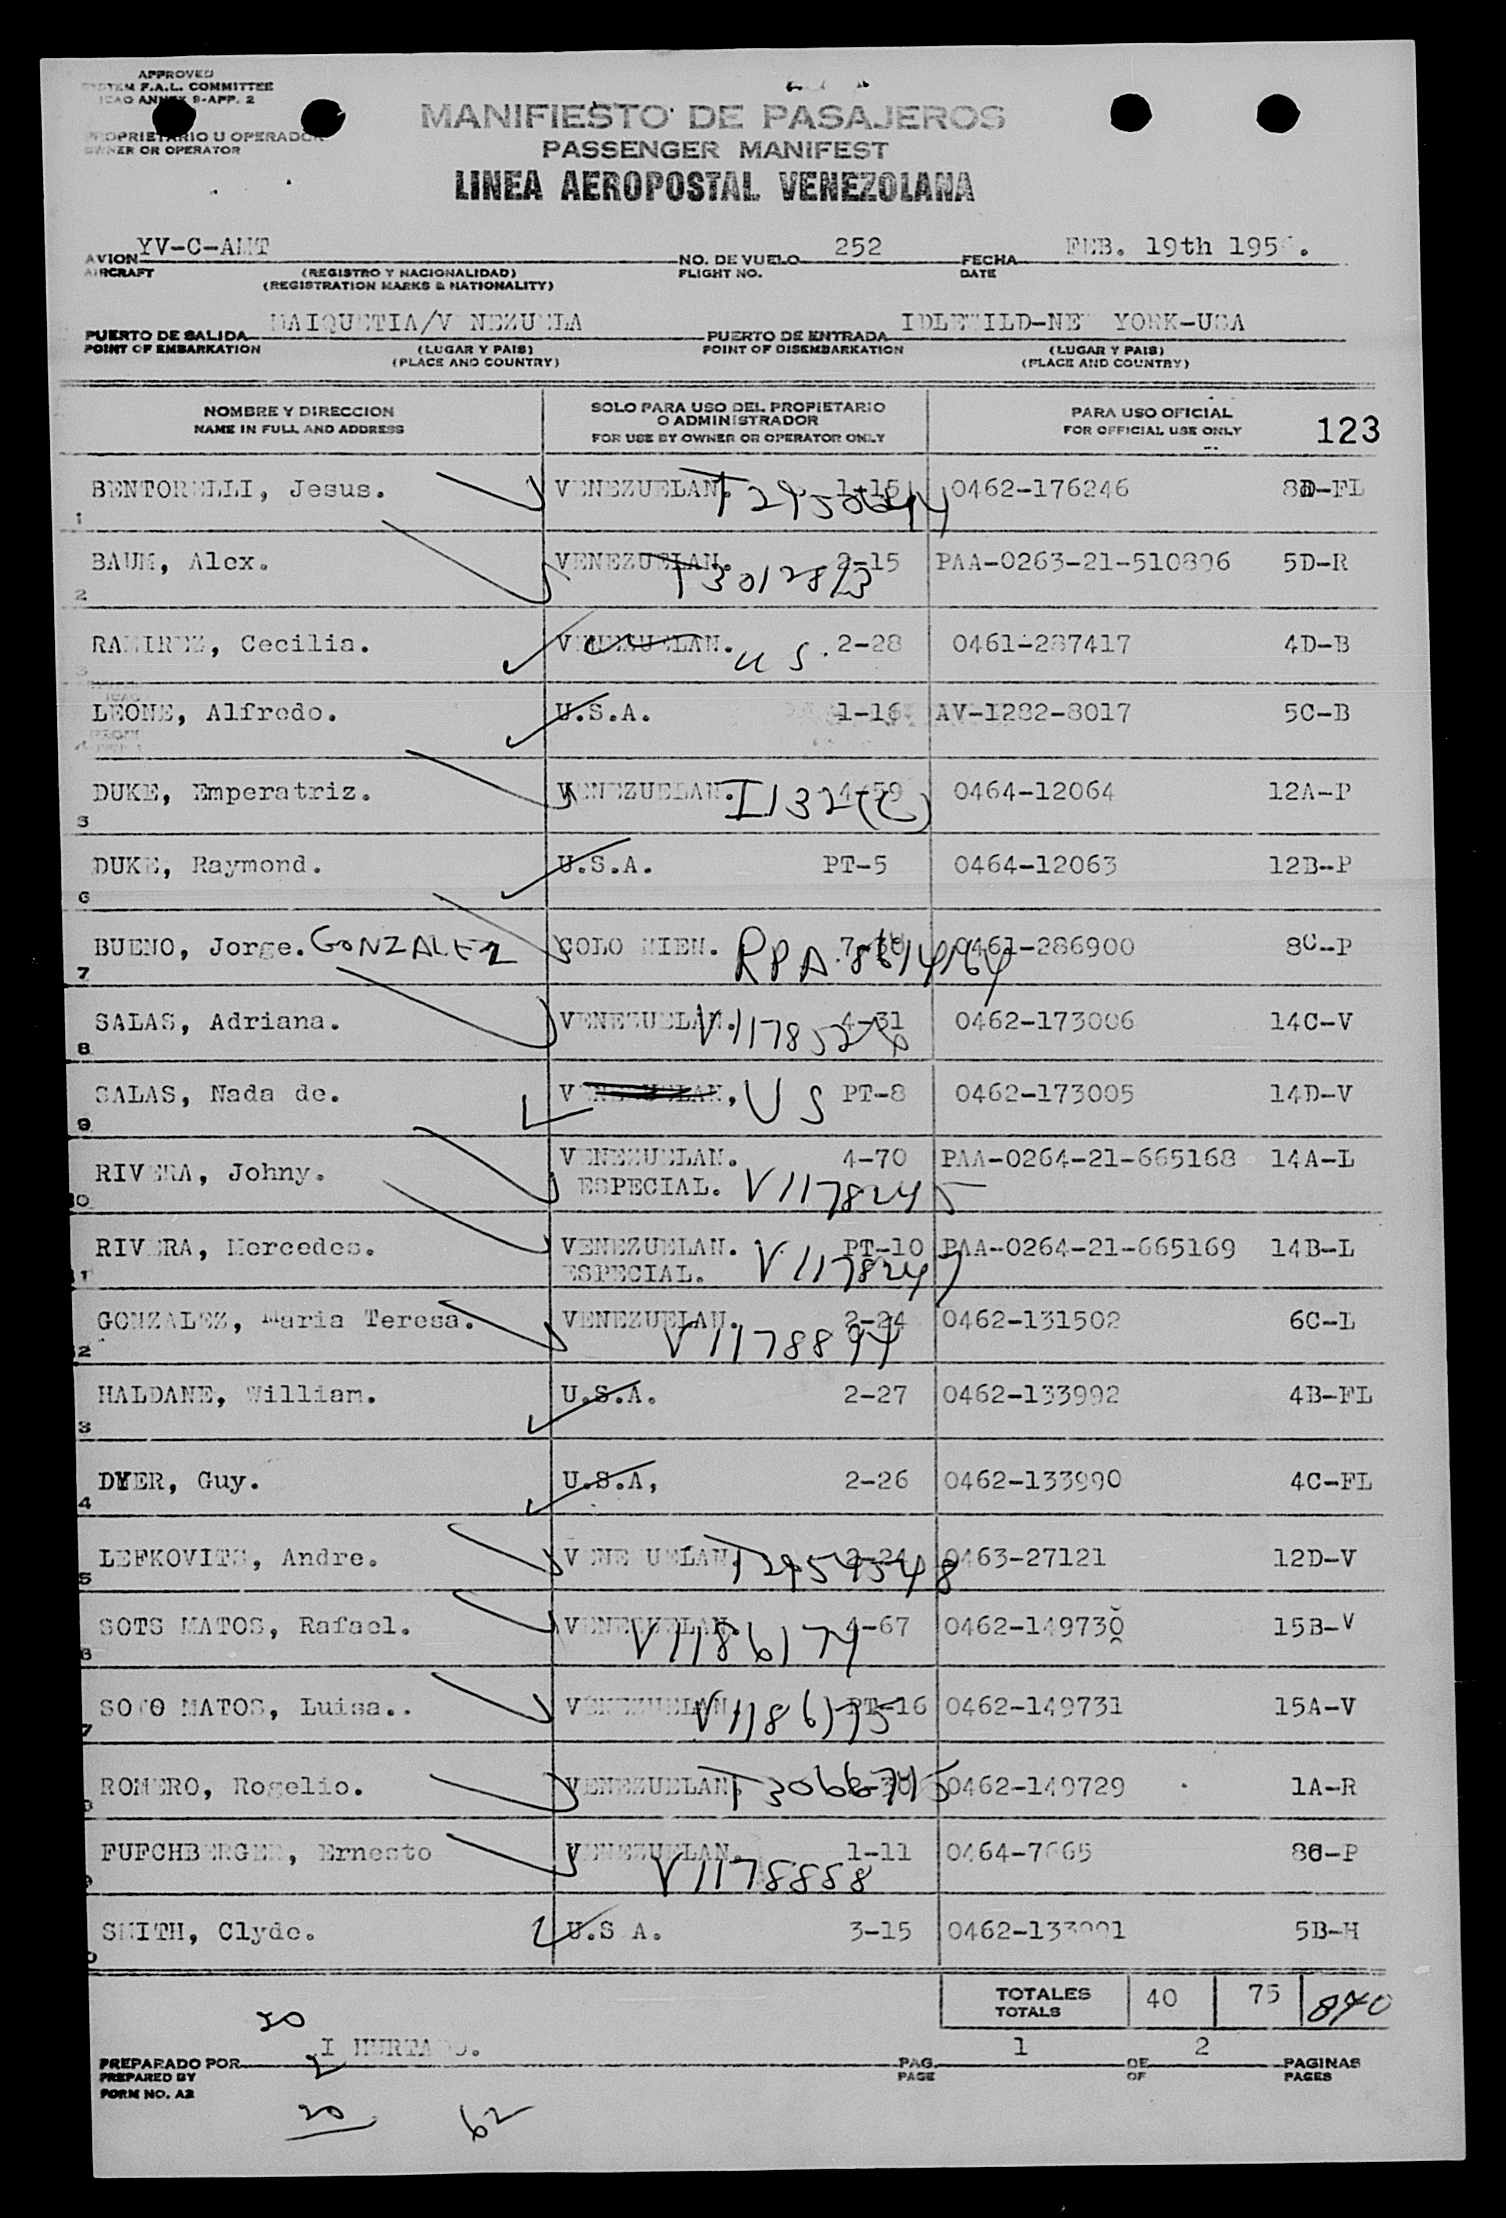 APPROVED
SYSTEM F.A.L. COMMITTEE
ICAO ANNEX 9-APP. 2
PROPRIETARIO U OPERADOR
OWNER OR OPERATOR
MANIFIESTO DE PASAJEROS
PASSENGER MANIFEST
LINEA AEROPOSTAL VENEZOLANA
AVION YV-C-AMT NO. DE VUELO 252 FECHA FEB. 19th 195 .
AIRCRAFT (REGISTRO Y NACIONALIDAD) FLIGHT NO. DATE
(REGISTRATION MARKS & NATIONALITY)
PUERTO DE SALIDA MAIQUETIA/VENEZUELA PUERTO DE ENTRADA IDLEWILD-NEW YORK-USA
POINT OF EMBARKATION (LUGAR Y PAIS) POINT OF DISEMBARKATION (LUGAR Y PAIS)
(PLACE AND COUNTRY) (PLACE AND COUNTRY)
NOMBRE Y DIRECCION SOLO PARA USO DEL PROPIETARIO PARA USO OFICIAL
NAME IN FULL AND ADDRESS O ADMINISTRADOR FOR OFFICIAL USE ONLY 123
FOR USE BY OWNER OR OPERATOR ONLY
1 BENTORELLI, Jesus. VENEZUELAN. 1-15 0462-176246 8D-FL
2 BAUM, Alex. VENEZUELAN. 2-15 T3012813 PAA-0263-21-510896 5D-R
3 RAMIREZ, Cecilia. VENEZUELAN. U S. 2-28 0461-287417 4D-B
4 LEONE, Alfredo. U.S.A. 1-16 AV-1282-8017 5C-B
5 DUKE, Emperatriz. VENEZUELAN. 4-59 I132(C) 0464-12064 12A-P
6 DUKE, Raymond. U.S.A. PT-5 0464-12063 12B-P
7 BUENO, Jorge. GONZALEZ COLOMBIEN. RPA 0461-286900 8C-P
8 SALAS, Adriana. VENEZUELAN. 4-31 0462-173006 14C-V
9 SALAS, Nada de. VENEZUELAN, U S PT-8 0462-173005 14D-V
10 RIVERA, Johny. VENEZUELAN. 4-70 PAA-0264-21-665168 14A-L
ESPECIAL. V1178245
11 RIVERA, Mercedes. VENEZUELAN. PT-10 PAA-0264-21-665169 14B-L
ESPECIAL. V1178247
12 GONZALEZ, Maria Teresa. VENEZUELAN. 2-24 V1178894 0462-131502 6C-L
3 HALDANE, William. U.S.A. 2-27 0462-133992 4B-FL
4 DYER, Guy. U.S.A, 2-26 0462-133990 4C-FL
5 LEFKOVITS, Andre. VENEZUELAN. T2954548 0463-27121 12D-V
6 SOTS MATOS, Rafael. VENEZUELAN. 4-67 V1186174 0462-149730 15B-V
7 SOTO MATOS, Luisa.. VENEZUELAN. PT-16 V1186175 0462-149731 15A-V
8 ROMERO, Rogelio. VENEZUELAN. T3066745 0462-149729 1A-R
9 FUFCHBERGER, Ernesto VENEZUELAN. 1-11 V1178858 0464-7665 8C-P
0 SMITH, Clyde. U.S.A. 3-15 0462-133991 5B-H
TOTALES 40 75 840
TOTALS
20
PREPARADO POR I HURTADO. PAG. 1 DE 2 PAGINAS
PREPARED BY PAGE OF PAGES
FORM NO. A2
20 62